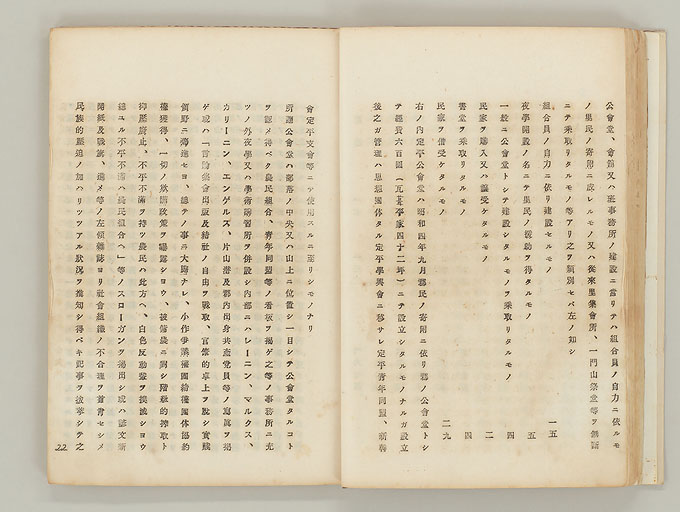 公會堂、會館又ハ班事務所ノ建設ニ當リテハ組合員ノ自力ニ依ルモ
ノ里民ノ寄附ニ成レルモノ又ハ從來里集會所、一門山祭堂等ヲ無斷
ニテ乘取リタルモノ等アリ之ヲ類別セバ左ノ如シ
組合員ノ自力ニ依リ建設セルモノ 一五
夜學開設ノ名ニテ里民ノ援助ヲ得タルモノ 五
一般ニ公會堂トシテ建設シタルモノヲ乘取リタルモノ 四
民家ヲ購入又ハ讓受ケタルモノ 二
書堂ヲ乘取リタルモノ 四
民家ヲ借受ケタルモノ 二九
右ノ內定平公會堂ハ昭和四年九月郡民ノ寄附ニ依リ郡ノ公會堂トシ
テ經費六百圓(瓦葺平家四十二坪)ニテ設立シタルモノナルガ設立
後之ガ管理ハ思想團体タル定平學興會ニ移サレ定平靑年同盟、新幹
會定平支會等ニテ使用スルニ至リシモノナリ
所謂公會堂ハ部落ノ中央又ハ山上ニ位置シ一目シテ公會堂タルコト
ヲ認メ得ベク農民組合、靑年同盟等ノ看板ヲ揭ゲ之等ノ事務所ニ充
ツノ外夜學又ハ學術講習所ヲ併設シ內部ニハレーニン、マルクス、
カリーニン、エンゲルズ、片山潜及郡內出身共產黨員等ノ寫眞ヲ揭
ゲ或ハ「言論集會出版及結社ノ自由ヲ戰取、官僚的卓上ヲ脫シ實踐
領野ニ邁進セヨ、總テノ事ニ大膽ナレ、小作爭議權團結權團体協約
權獲得、一切ノ欺瞞政策ヲ曝露シヨウ、被備農ニ對シ階級的搾取ト
抑壓廢止、不平不滿ヲ持ツ農民ハ此方ヘ、白色反動輩ヲ撲滅シヨウ
總ユル不平不滿ハ農民組合ヘ」等ノスローガンヲ揭出シ或ハ諺文新
聞紙及戰旗、進メ等ノ左傾雜誌ヨリ社會組織ノ不合理ヲ首肯セシメ
民族的壓迫ノ加ハリツツアル狀況ヲ推知シ得ベキ記事ヲ拔萃シテ之
22